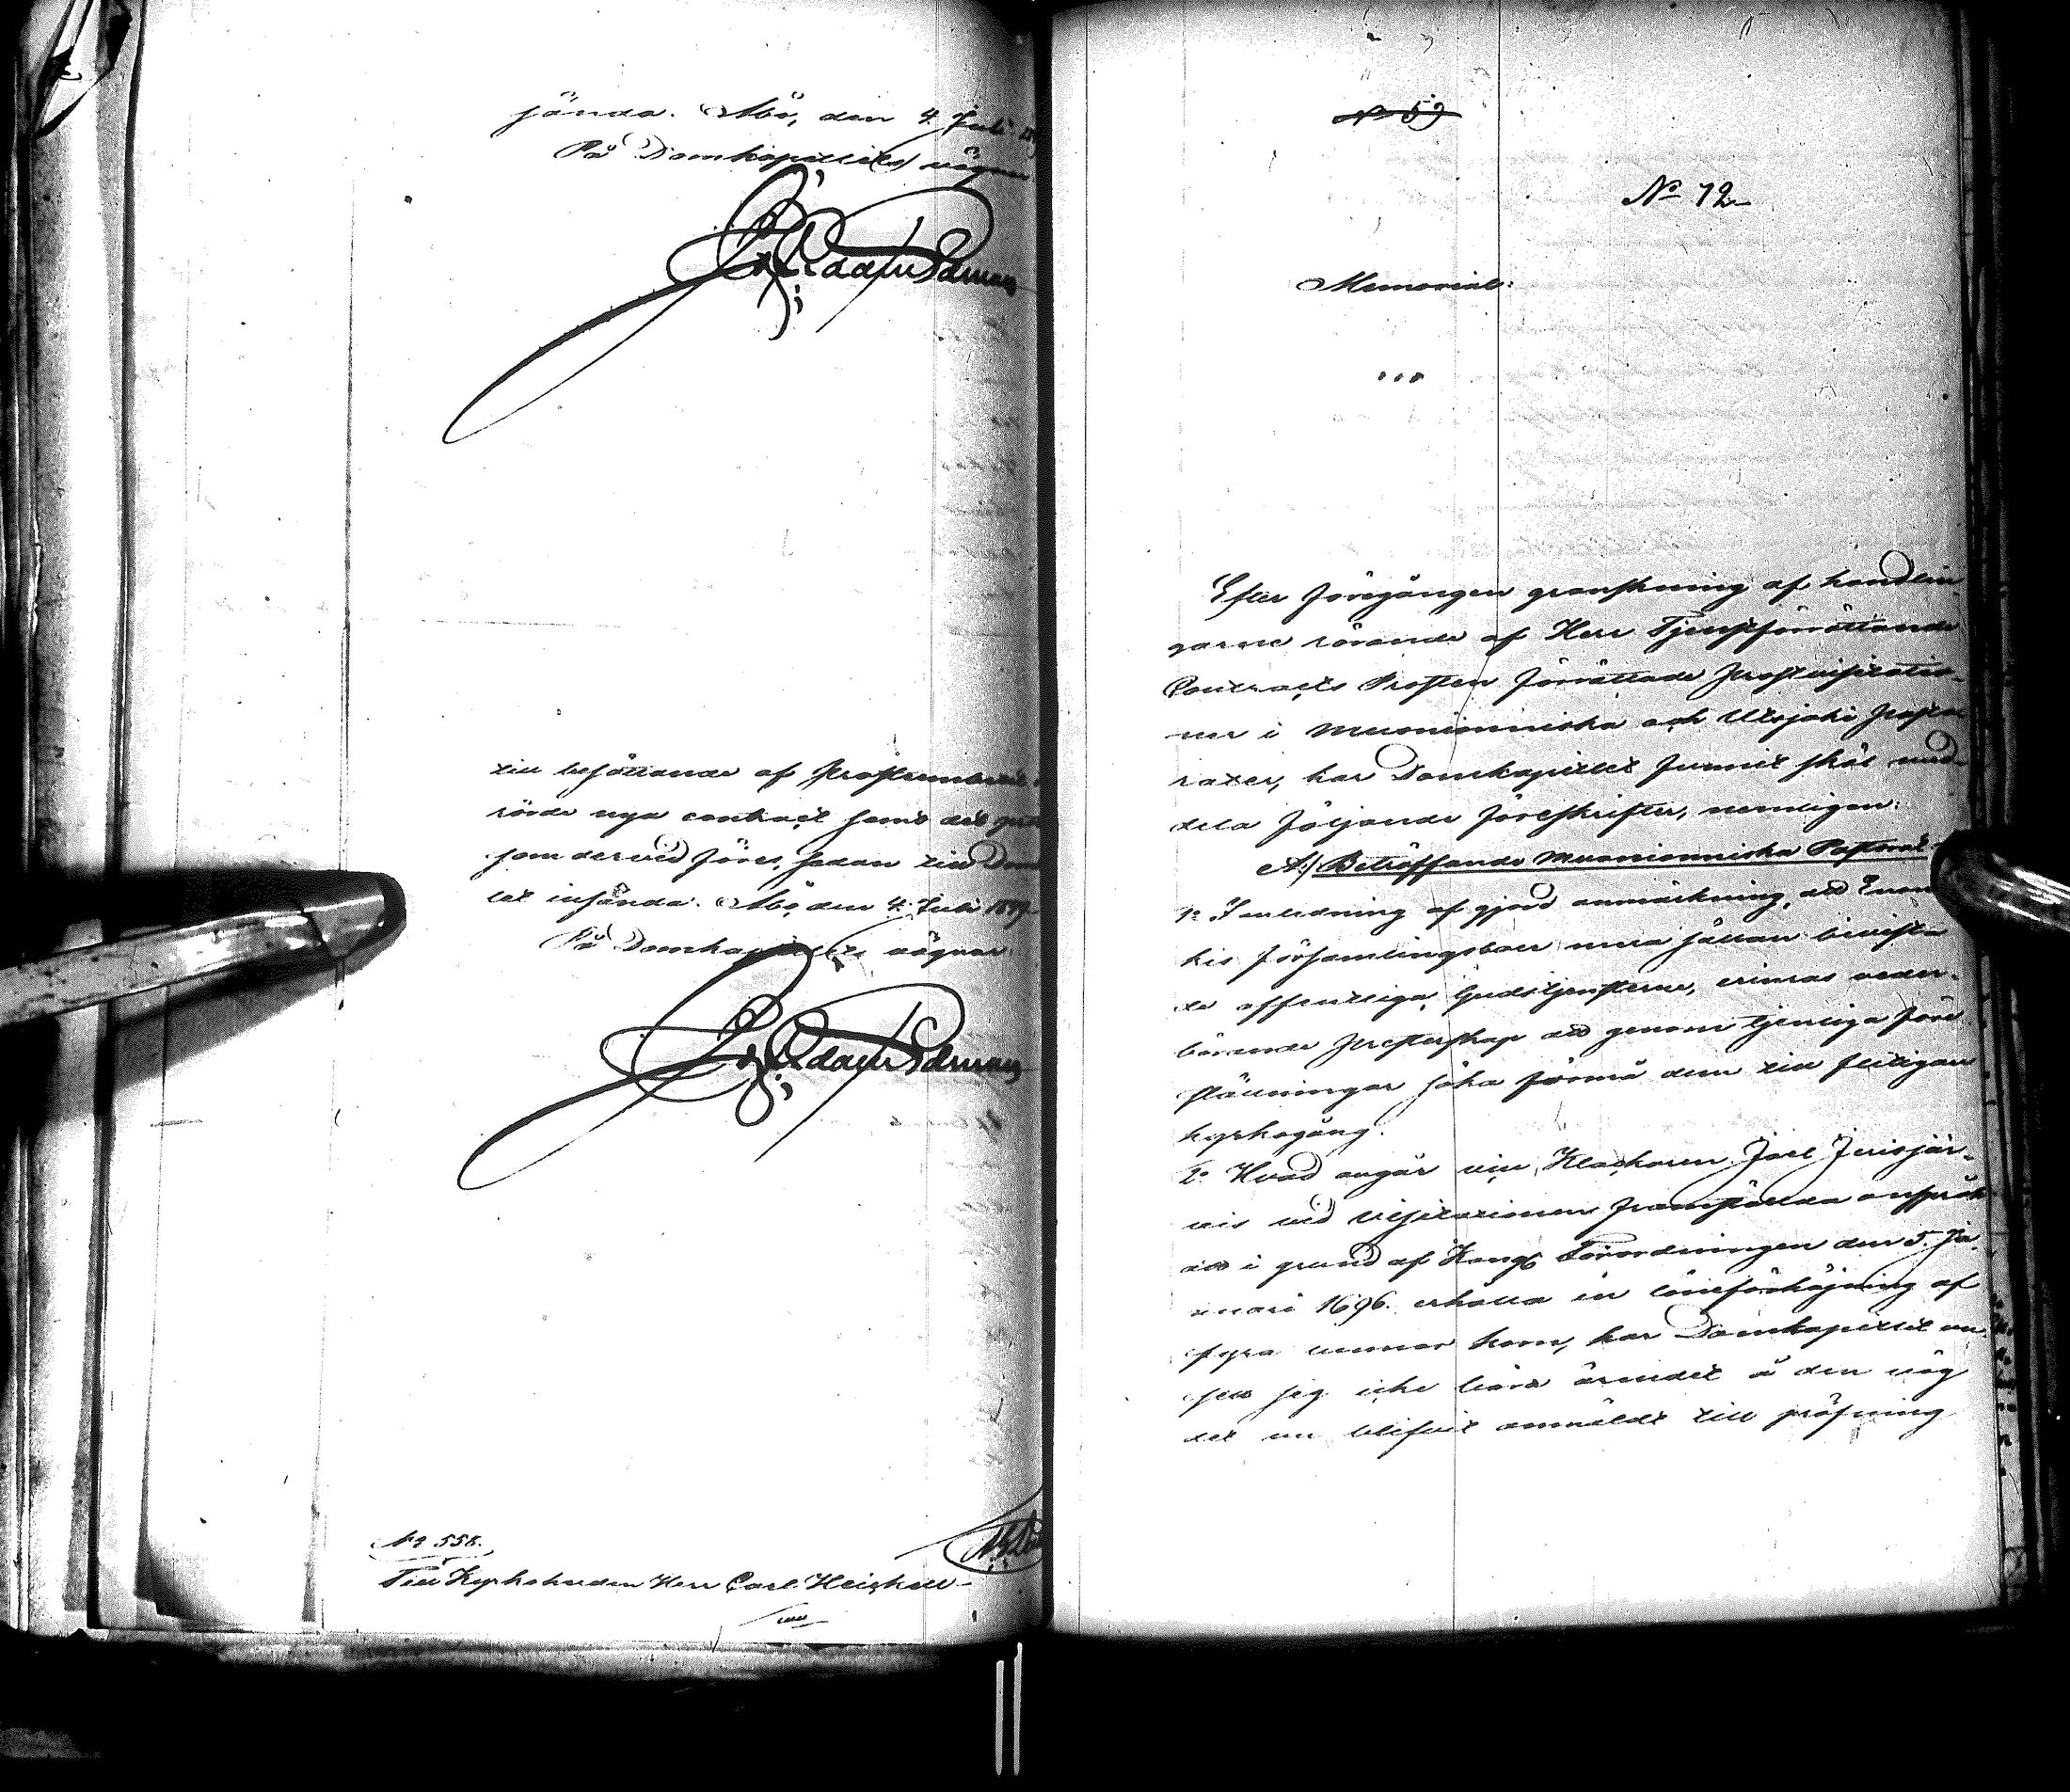 sända. Åbo, den 4. Juli
På Domkapitlets vägnar
till besättande af Prostembetet
rörde nya contract samt det
som dervid föres, sedan till Dom
let insända. Åbo, den 4. Juli 1849
På Domkapitlets vägnar
No 558.
Till Kyrkoherden Herr Carl Heickell
No 59
No 72
Memorial.
Efter föregången granskning af handlin
garne rörande af Herr Tjenstförrättande
Contracts Prosten förrättade prostvisitatio-
ner i Muonionniska och Utsjoki pasto
rater, har Domkapitlet funnit skäl med-
dela följande föreskrifter, nemligen:
A.) Beträffande Muonionniska Pastorat
1o I anledning af gjord anmärkning, att Enon
kis församlingsboer mera sällan bevista
de offentliga Gudstjensterne, erinras veder-
börande presterskap att genom tjenliga före
ställningar söka förmå dem till flitigare
kyrkogång.
2o Hvad angår vice Klockaren Joel Jerisjär-
vis vid visitationen framställda anspråk
att i grund af Kongl. Förordningen den 5. Ja-
nuari 1696. erhålla en löneförhöjning af
fyra tunnor korn, har Domkapitlet an
sett sig icke böra ärendet å den väg
det nu blifvit anmäldt till pröfning